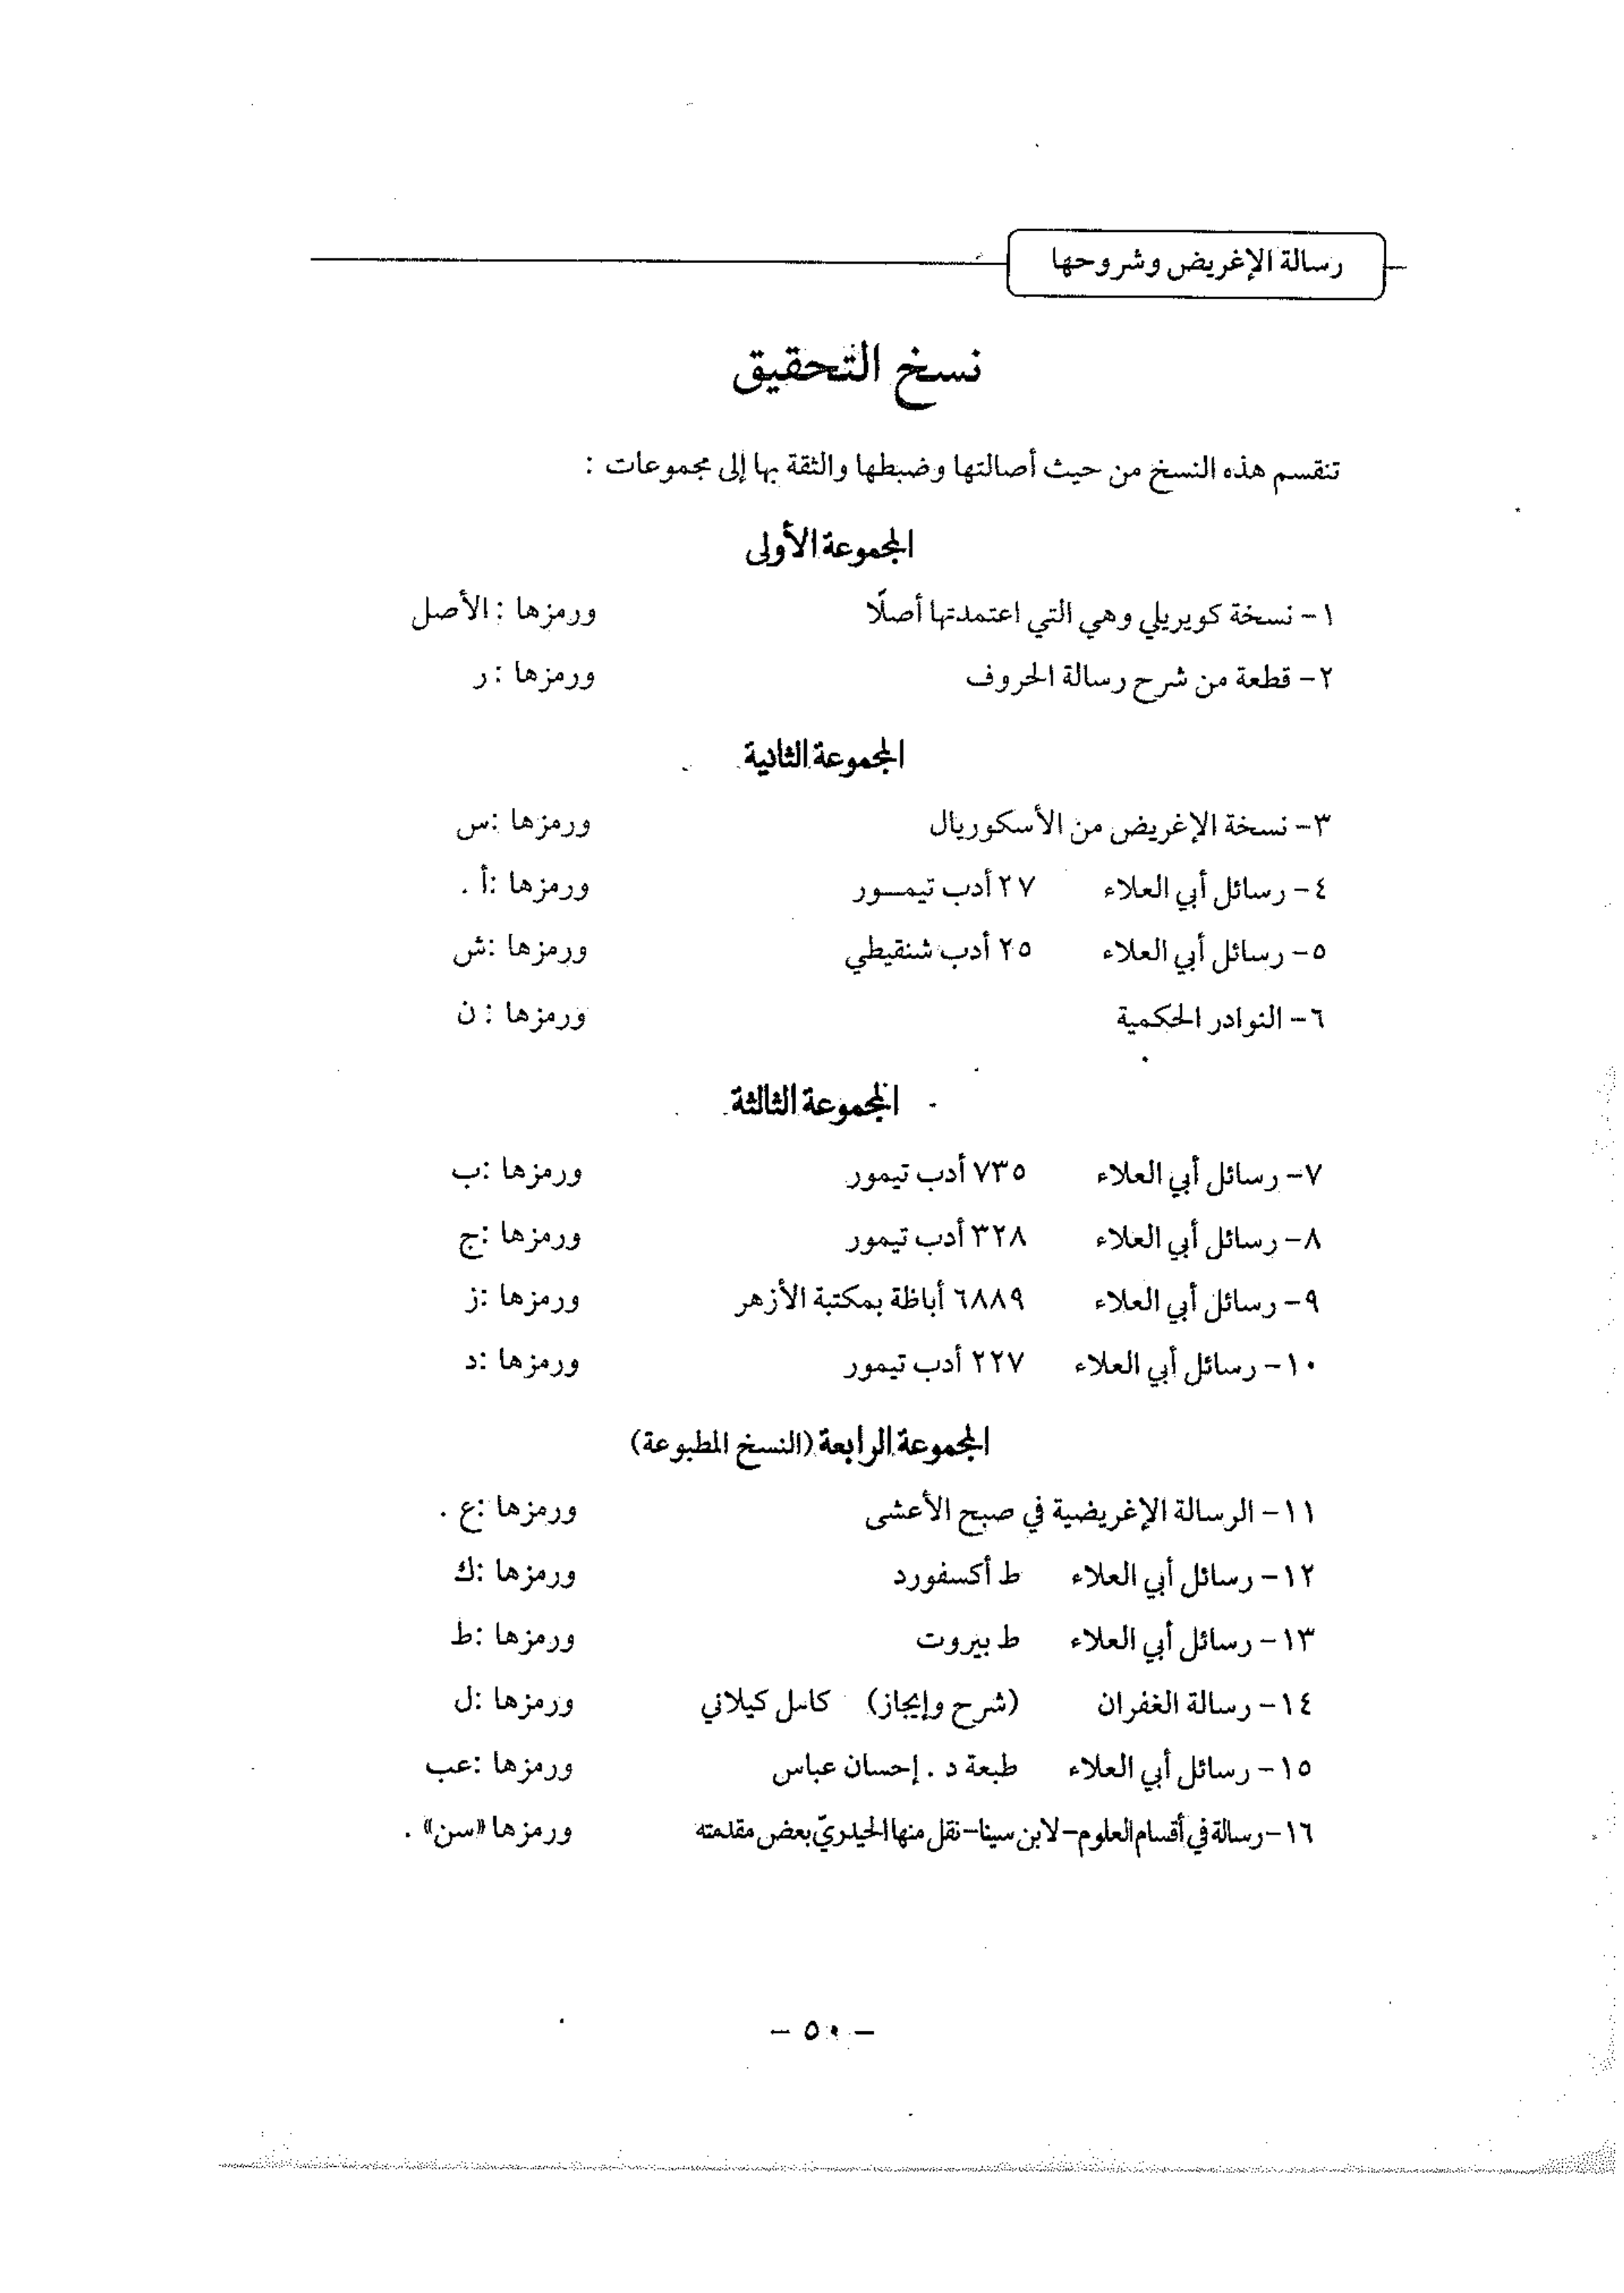 رسالة الإغريض وشروحها
نسخ التحقيق
تنقسم هذه النسخ من حيث أصالتها وضبطها والثقة بها إلى مجموعات :
المجموعة الأولى
١- نسخة كوبريلي وهي التي اعتمدتها أصلًا ورمزها : الأصل
٢- قطعة من شرح رسالة الحروف ورمزها : ر
المجموعة الثانية
٣- نسخة الإغريض من الأسكوريال ورمزها :س
٤- رسائل أبي العلاء ٢٧ أدب تيمـــور ورمزها :أ .
٥- رسائل أبي العلاء ٢٥ أدب شنقيطي ورمزها :ش
٦- النوادر الحكمية ورمزها : ن
المجموعة الثالثة
٧- رسائل أبي العلاء ٧٣٥ أدب تيمور ورمزها :ب
٨- رسائل أبي العلاء ٣٢٨ أدب تيمور ورمزها :ج
٩- رسائل أبي العلاء ٦٨٨٩ أباظة بمكتبة الأزهر ورمزها :ز
١٠- رسائل أبي العلاء ٢٢٧ أدب تيمور ورمزها :د
المجموعة الرابعة (النسخ المطبوعة)
١١- الرسالة الإغريضية في صبح الأعشى ورمزها :ع .
١٢- رسائل أبي العلاء ط أكسفورد ورمزها :ك
١٣- رسائل أبي العلاء ط بيروت ورمزها :ط
١٤- رسالة الغفران (شرح وإيجاز) كامل كيلاني ورمزها :ل
١٥- رسائل أبي العلاء طبعة د . إحسان عباس ورمزها :عب
١٦- رسالة في أقسام العلوم- لابن سينا- نقل منها الحيدريّ بعض مقدمته ورمزها «سن» .
– ٥٠ –